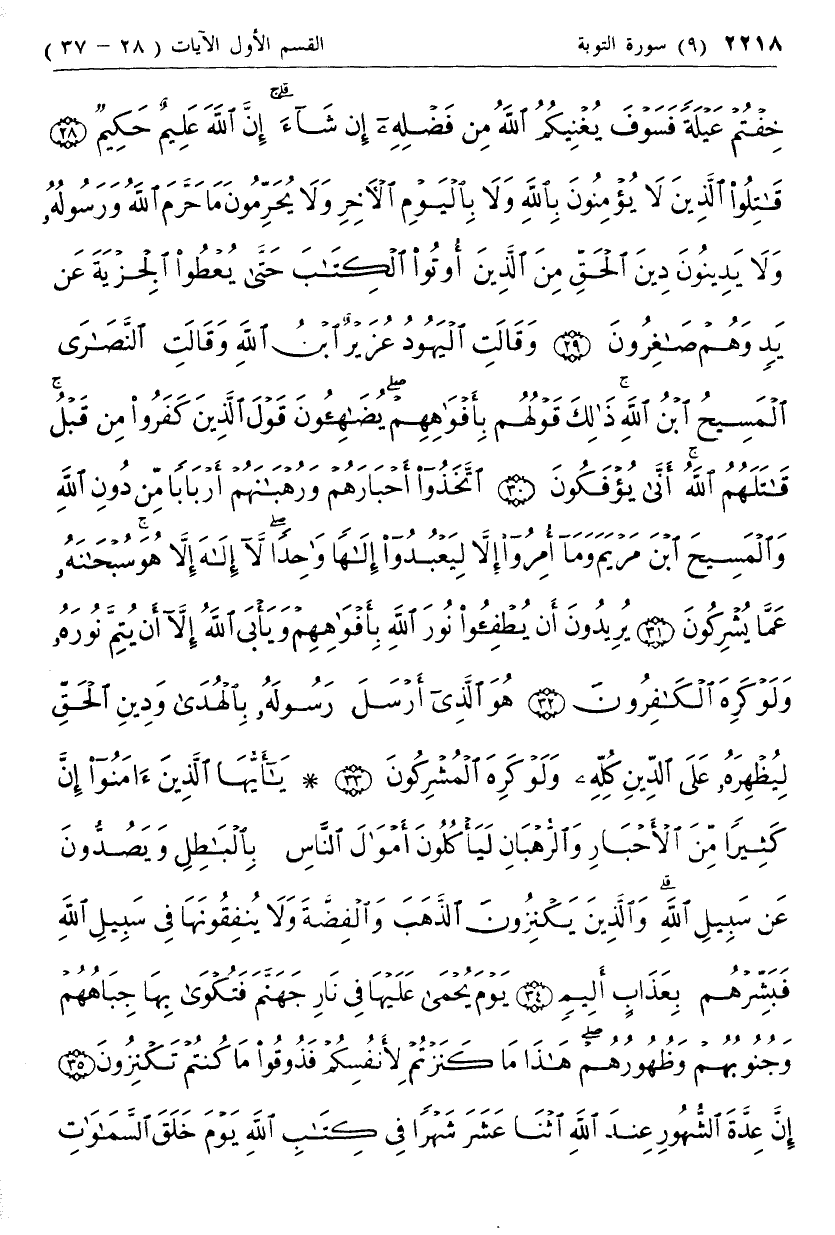 ٢٢١٨ (٩) سورة التوبة القسم الأول الآيات ( ٢٨ – ٣٧ )
خِفۡتُمۡ عَيۡلَةٗ فَسَوۡفَ يُغۡنِيكُمُ ٱللَّهُ مِن فَضۡلِهِۦٓ إِن شَآءَۚ إِنَّ ٱللَّهَ عَلِيمٌ حَكِيمٞ ٢٨
قَٰتِلُواْ ٱلَّذِينَ لَا يُؤۡمِنُونَ بِٱللَّهِ وَلَا بِٱلۡيَوۡمِ ٱلۡأٓخِرِ وَلَا يُحَرِّمُونَ مَا حَرَّمَ ٱللَّهُ وَرَسُولُهُۥ
وَلَا يَدِينُونَ دِينَ ٱلۡحَقِّ مِنَ ٱلَّذِينَ أُوتُواْ ٱلۡكِتَٰبَ حَتَّىٰ يُعۡطُواْ ٱلۡجِزۡيَةَ عَن
يَدٖ وَهُمۡ صَٰغِرُونَ ٢٩ وَقَالَتِ ٱلۡيَهُودُ عُزَيۡرٌ ٱبۡنُ ٱللَّهِ وَقَالَتِ ٱلنَّصَٰرَى
ٱلۡمَسِيحُ ٱبۡنُ ٱللَّهِۖ ذَٰلِكَ قَوۡلُهُم بِأَفۡوَٰهِهِمۡۖ يُضَٰهِـُٔونَ قَوۡلَ ٱلَّذِينَ كَفَرُواْ مِن قَبۡلُۚ
قَٰتَلَهُمُ ٱللَّهُۖ أَنَّىٰ يُؤۡفَكُونَ ٣٠ ٱتَّخَذُوٓاْ أَحۡبَارَهُمۡ وَرُهۡبَٰنَهُمۡ أَرۡبَابٗا مِّن دُونِ ٱللَّهِ
وَٱلۡمَسِيحَ ٱبۡنَ مَرۡيَمَ وَمَآ أُمِرُوٓاْ إِلَّا لِيَعۡبُدُوٓاْ إِلَٰهٗا وَٰحِدٗاۖ لَّآ إِلَٰهَ إِلَّا هُوَۚ سُبۡحَٰنَهُۥ
عَمَّا يُشۡرِكُونَ ٣١ يُرِيدُونَ أَن يُطۡفِـُٔواْ نُورَ ٱللَّهِ بِأَفۡوَٰهِهِمۡ وَيَأۡبَى ٱللَّهُ إِلَّآ أَن يُتِمَّ نُورَهُۥ
وَلَوۡ كَرِهَ ٱلۡكَٰفِرُونَ ٣٢ هُوَ ٱلَّذِيٓ أَرۡسَلَ رَسُولَهُۥ بِٱلۡهُدَىٰ وَدِينِ ٱلۡحَقِّ
لِيُظۡهِرَهُۥ عَلَى ٱلدِّينِ كُلِّهِۦ وَلَوۡ كَرِهَ ٱلۡمُشۡرِكُونَ ٣٣ * يَٰٓأَيُّهَا ٱلَّذِينَ ءَامَنُوٓاْ إِنَّ
كَثِيرٗا مِّنَ ٱلۡأَحۡبَارِ وَٱلرُّهۡبَانِ لَيَأۡكُلُونَ أَمۡوَٰلَ ٱلنَّاسِ بِٱلۡبَٰطِلِ وَيَصُدُّونَ
عَن سَبِيلِ ٱللَّهِۗ وَٱلَّذِينَ يَكۡنِزُونَ ٱلذَّهَبَ وَٱلۡفِضَّةَ وَلَا يُنفِقُونَهَا فِي سَبِيلِ ٱللَّهِ
فَبَشِّرۡهُم بِعَذَابٍ أَلِيمٖ ٣٤ يَوۡمَ يُحۡمَىٰ عَلَيۡهَا فِي نَارِ جَهَنَّمَ فَتُكۡوَىٰ بِهَا جِبَاهُهُمۡ
وَجُنُوبُهُمۡ وَظُهُورُهُمۡۖ هَٰذَا مَا كَنَزۡتُمۡ لِأَنفُسِكُمۡ فَذُوقُواْ مَا كُنتُمۡ تَكۡنِزُونَ ٣٥
إِنَّ عِدَّةَ ٱلشُّهُورِ عِندَ ٱللَّهِ ٱثۡنَا عَشَرَ شَهۡرٗا فِي كِتَٰبِ ٱللَّهِ يَوۡمَ خَلَقَ ٱلسَّمَٰوَٰتِ